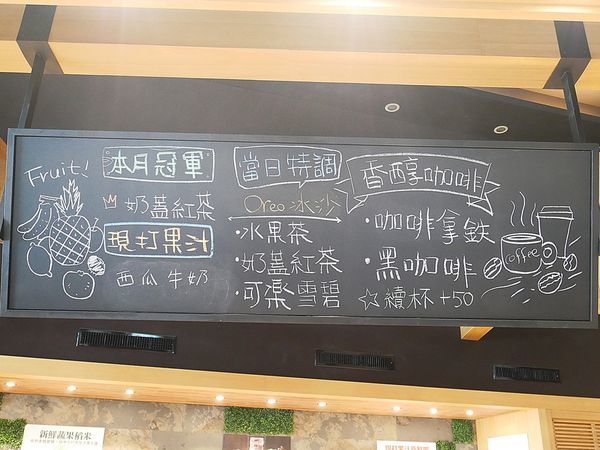 Fruit!
本月冠軍
奶蓋紅茶
現打果汁
西瓜牛奶
當日特調
Oreo冰沙
・水果茶
・奶蓋紅茶
・可樂 雪碧
香醇咖啡
・咖啡拿鐵
・黑咖啡
☆續杯 +50
coffee
新鮮蔬果稻米